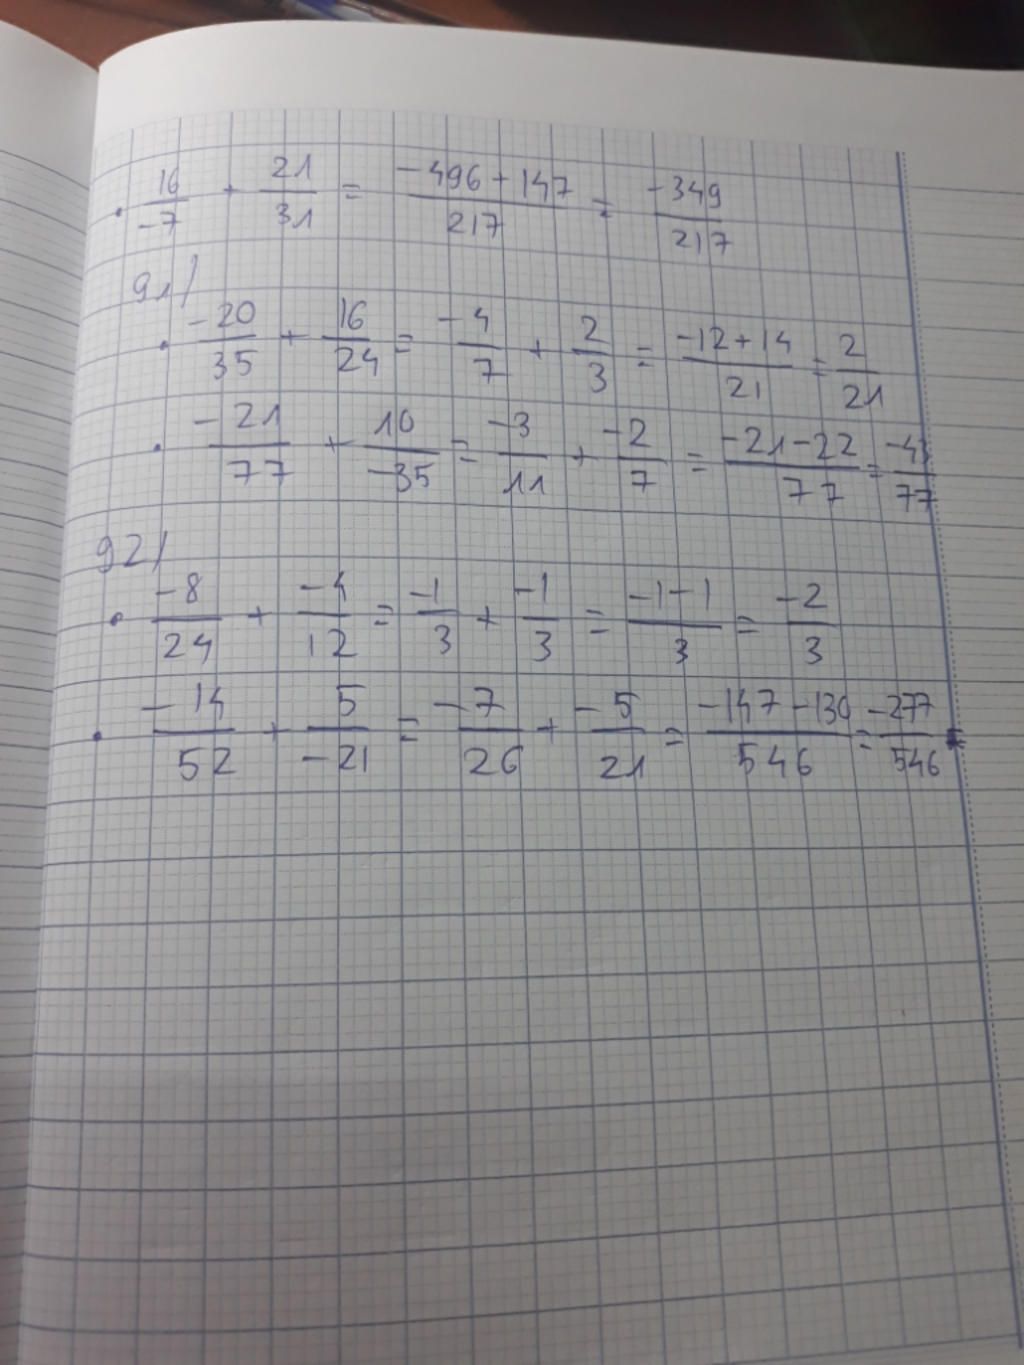 • 16/-7 + 21/31 = -496+147/217 = -349/217
91/
• -20/35 + 16/24 = -4/7 + 2/3 = -12+14/21 = 2/21
• -21/77 + 10/-35 = -3/11 + -2/7 = -21-22/77 = -43/77
92/
• -8/24 + -4/12 = -1/3 + -1/3 = -1-1/3 = -2/3
• -14/52 + 5/-21 = -7/26 + -5/21 = -147-130/546 = -277/546